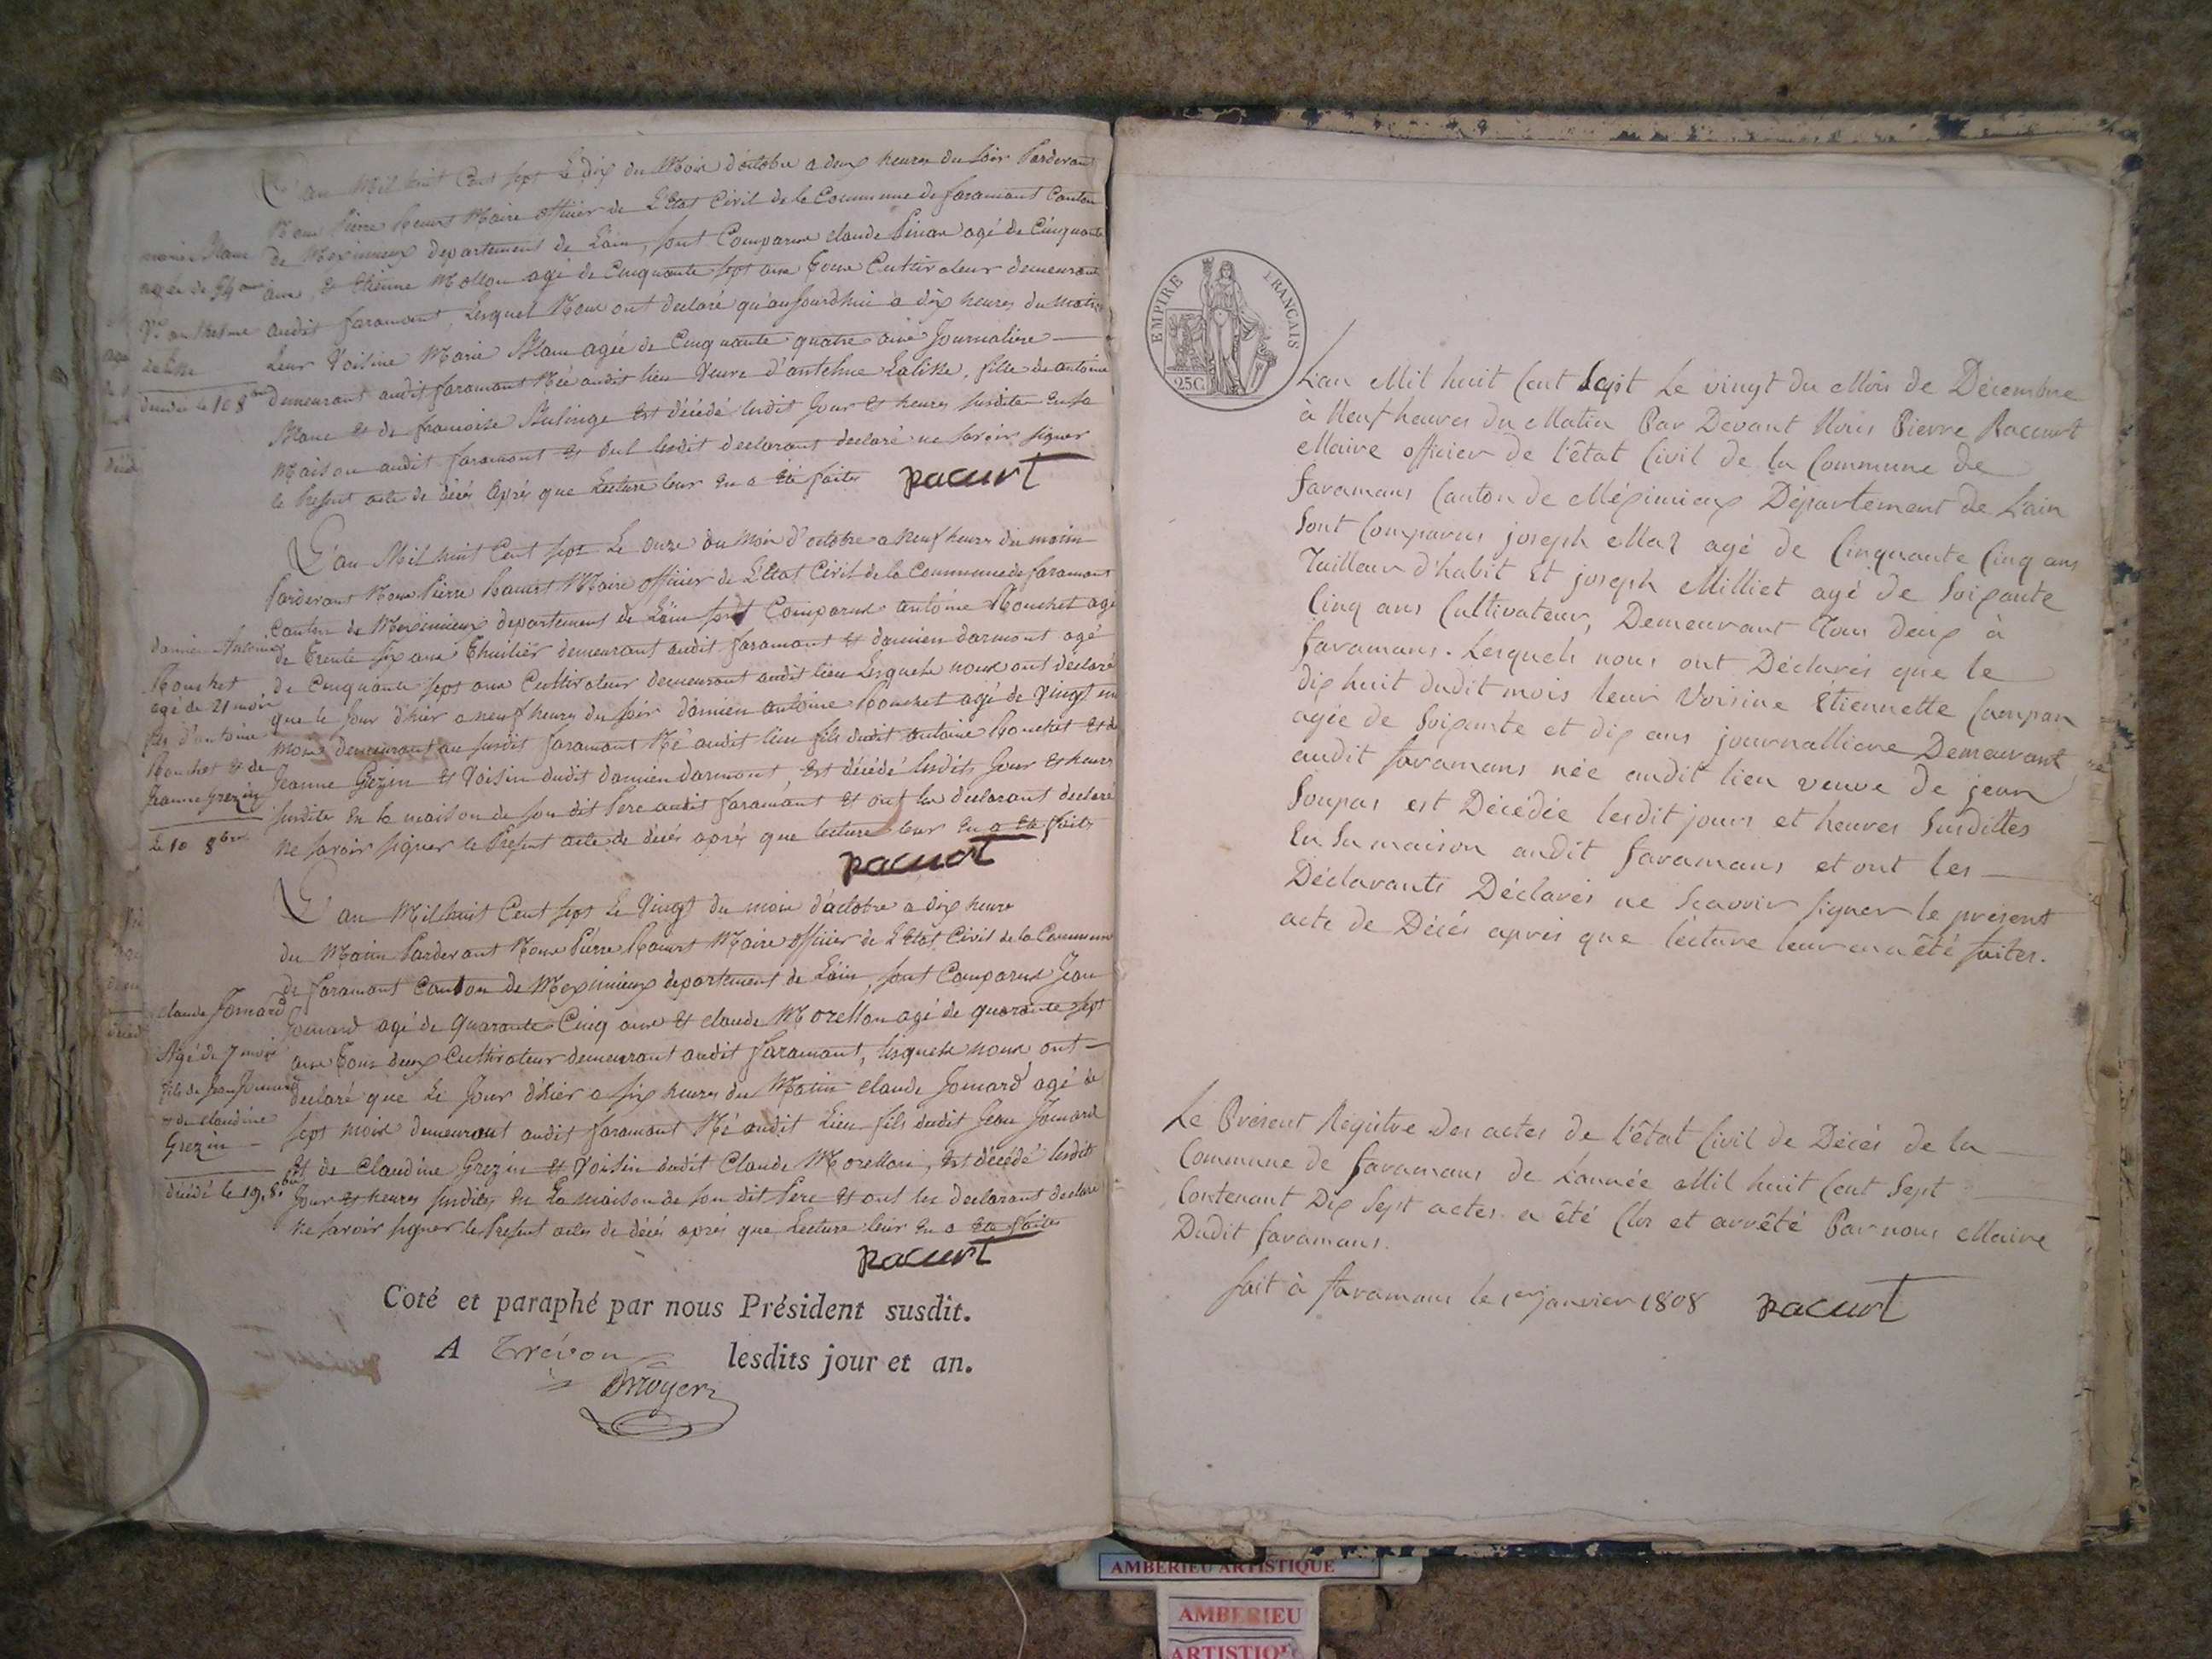 L'an Mil huit Cent sept Le dix du Mois d'octobre a deux heures du soir Pardevant
Nous Pierre Racurt Maire officier de L'Etat Civil de la Commune de faramant Canton
de Meximieux departement de L'ain, sont Comparus claude agé de Cinquante
ans, & Etienne Mollon agé de Cinquante sept ans tous Cultivateur demeurant
audit faramant, Lesquel Nous ont declaré qu'aujourdhui a dix heures du matin
Leur Voisine Marie agée de Cinquante quatre ans Journaliere
demeurant audit faramant Né audit lieu Veuve d'antelme fille de antoine
& de francoise est décédé lesdit Jour & heures susdite en sa
Maison audit faramant & ont lesdit declarant declaré ne savoir signer
le Present acte de décés après que Lecture leur en a été faite
racurt
marie
agée de 54 ans
Ve anthelme
decedée le 10 8bre
L'an Mil huit Cent sept Le onze du mois d'octobre a neuf heures du matin
Pardevant Nous Pierre Racurt Maire officier de L'Etat Civil de la Commune de faramant
Canton de Meximieux departement de L'ain sont Comparus antoine Rouchet agé
de Trente six ans Thuilier demeurant audit faramant & damien darmont agé
de Cinquante sept ans Cultivateur demeurant audit lieu Lesquels nous ont declaré
que le Jour d'hier a neuf heures du soir damien antoine Rouchet agé de vingt un
mois demeurant au susdit faramant Né audit lieu fils dudit antoine Rouchet et de
Jeanne Grezin & Voisin dudit damien darmont, est décédé lesdits Jour & heures
susdites en la maison de son dit Pere audit faramant & ont les declarant declaré
ne savoir signer le Present acte de décés après que lecture leur en a été faite
racurt
damien Antoine
Rouchet
agé de 21 mois
fils d'antoine
Rouchet & de
Jeanne Grezin
Le 10 8bre
L'an Mil huit Cent sept Le Vingt du mois d'octobre a dix heures
du Matin Pardevant Nous Pierre Racurt Maire officier de L'Etat Civil de la Commune
de faramant Canton de Meximieux departement de L'ain, sont Comparus Jean
Jomard agé de Quarante Cinq ans & claude Morellon agé de quarante sept
ans tous deux Cultivateur demeurant audit faramant, lesquels nous ont
declaré que Le Jour d'hier a six heures du Matin claude Jomard agé de
sept mois demeurant audit faramant Né audit Lieu fils dudit Jean Jomard
& de Claudine Grezin & Voisin dudit Claude Morellon, est décédé lesdits
Jour & heures susdites en La maison de son dit Pere & ont les declarant declaré
ne savoir signer le Present actes de décés après que Lecture leur en a été faite
racurt
claude Jomard
Agé de 7 mois
fils de Jean Jomard
& de claudine
Grezin
décédé le 19 8bre
Coté et paraphé par nous Président susdit.
A Trévoux lesdits jour et an.
EMPIRE FRANÇAIS
25C
L'an Mil huit Cent Sept Le vingt du Mois de Décembre
à Neuf heures du Matin Par Devant Nous Pierre Racurt
Maire officier de l'état Civil de la Commune de
faramans Canton de Méximieux Département de L'ain
Sont Comparus joseph Maz agé de Cinquante Cinq ans
Tailleur d'habit Et joseph Milliet agé de Soixante
Cinq ans Cultivateur, Demeurant Tous deux à
faramans. Lesquels nous ont Déclarés que le
dix huit dudit mois leur Voisine Etiennette Campan
agée de Soixante et dix ans journalliere Demeurant
audit faramans née audit lieu veuve de jean
Soupas est Décédée lesdit jours et heures Susdittes
En Sa maison audit faramans et ont les
Déclarants Déclarés ne Scavoir signer le présent
acte de Décés après que lécture leur en a été faites.
Le Présent Régitre Des actes de l'état Civil de Décés de la
Commune de faramans de L'année Mil huit Cent Sept
Contenant Dix Sept actes a été Clos et arrêté Par nous Maire
Dudit faramans.
fait à faramans le 1er janvier 1808 racurt
AMBERIEU ARTISTIQUE
AMBERIEU
ARTISTIQUE